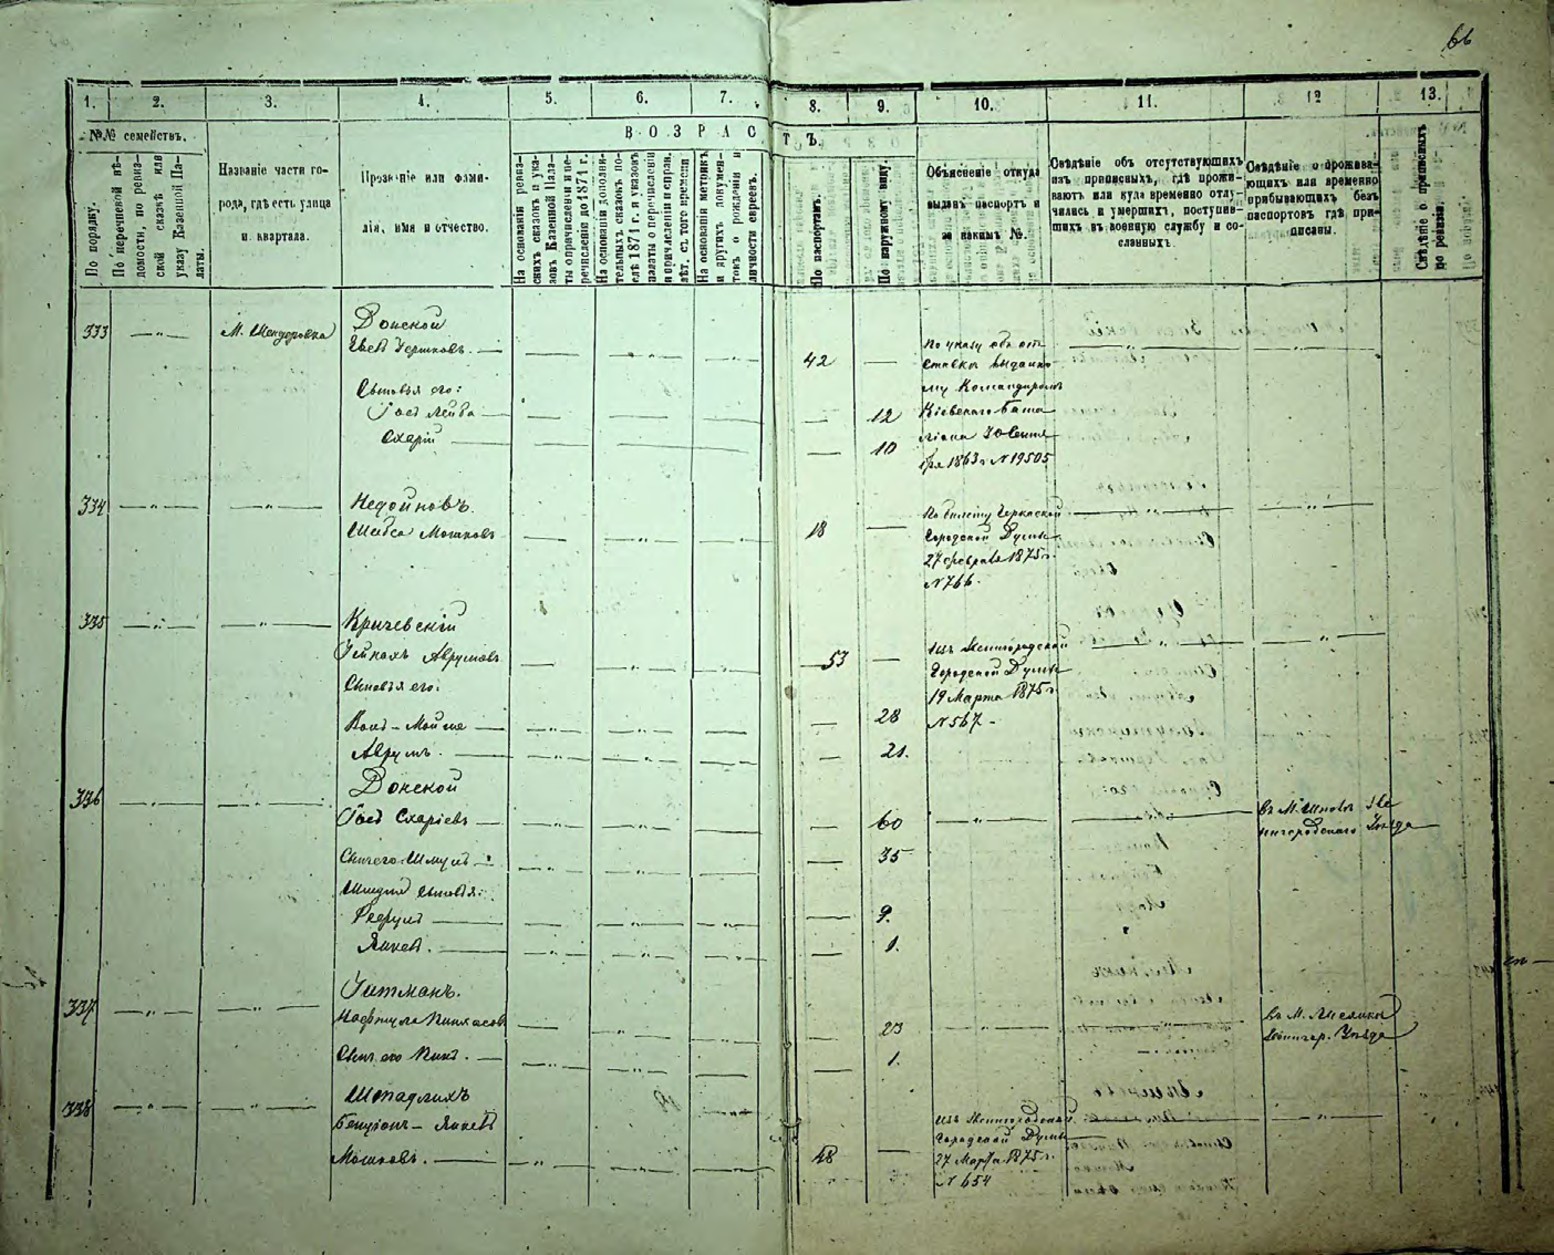 66
1. 2. 3. 4. 5. 6. 7. 8. 9. 10. 11. 12 13.
№№ семействъ.
В О З Р А С Т Ъ.
По порядку.
По перечневой вѣ-
домости, по ревиз-
ской сказкѣ или
указу Казенной Па-
латы.
Названіе части го-
рода, гдѣ есть улица
и квартала.
Прозваніе или фами-
лія, имя и отчество.
На основаніи ревиз-
скихъ сказокъ и ука-
зовъ Казенной Пала-
ты о причисленіи и пе-
речисленіи до 1871 г.
На основаніи дополни-
тельныхъ сказокъ по-
слѣ 1871 г. и указовъ
палаты о перечисленіи
и причисленіи и справ.
лѣт. съ того времени
На основаніи метрикъ
и другихъ докумен-
товъ о рожденіи и
личности евреевъ.
По паспортамъ.
По наружному виду.
Объясненіе откуда
выданъ паспортъ и
за какимъ №.
Свѣдѣніе объ отсутствующихъ
изъ приписныхъ, гдѣ прожи-
ваютъ или куда временно отлу-
чились и умершихъ, поступив-
шихъ въ военную службу и со-
сланныхъ.
Свѣдѣніе о прожива-
ющихъ или временно
прибывающихъ безъ
паспортовъ гдѣ при-
писаны.
Свѣдѣніе о приписныхъ
по ревизіи.
333 — „ — М. Шендеровка Донской
Сыновья его:
42
12
10
По указу объ от-
ставкѣ выданно-
му Командиромъ
Кіевскаго Бата-
ліона 30 Сентя-
бря 1863 г. № 19505
334 — „ — — „ —
Мошковъ
18
По билету Черкаской
Городской Думы
27 февраля 1875 г.
№ 766.
335 — „ — — „ — Кричевскій
Аврумовъ
53
Сыновья его:
28
Аврумъ. 21.
изъ Звенигородской
Городской Думы
19 Марта 1875 г.
№ 567.
336 — „ — — „ — Донской
Схаріевъ 60
въ М. Шполѣ Зве
нигородскаго Уѣзда
Сынъ его Шмуль 35
Шмуля сыновья:
9.
Янкель. 1.
337 — „ — — „ — Гитманъ.
Нафтула Пинхасовъ 23
Звенигор. Уѣзда
Сынъ его 1.
338 — „ — — „ —
Бенціонъ - Янкель
Мошковъ. 48
изъ Звенигородской
Городской Думы
27 Марта 1875 г.
№ 654